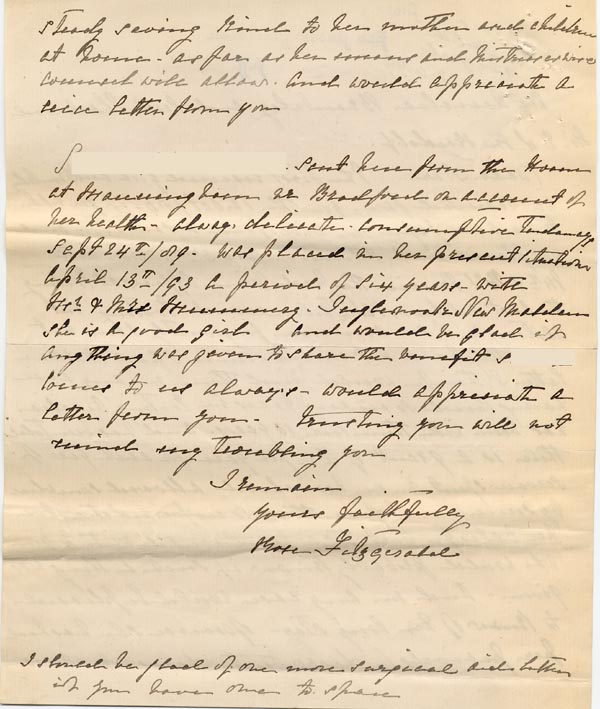 steady saving kind to her mother and children
at home - as far as her means and Mistresses wise
counsel will allow. and would appreciate a
nice letter from you
S
sent here from the Home
at Manningham nr Bradford on account of
her health - always delicate - consumptive Tendency
Sept 24th/89 - was placed in her present situation
April 13th/93 a period of six years - with
Mr & Mrs New Malden
she is a good girl and would be glad if
anything was given to share the benefit S
comes to us always - would appreciate a
letter from you - trusting you will not
mind my troubling you
I remain
Yours faithfully
Rose Fitzgerald
I should be glad of one more surgical aid letter
if you have one to spare